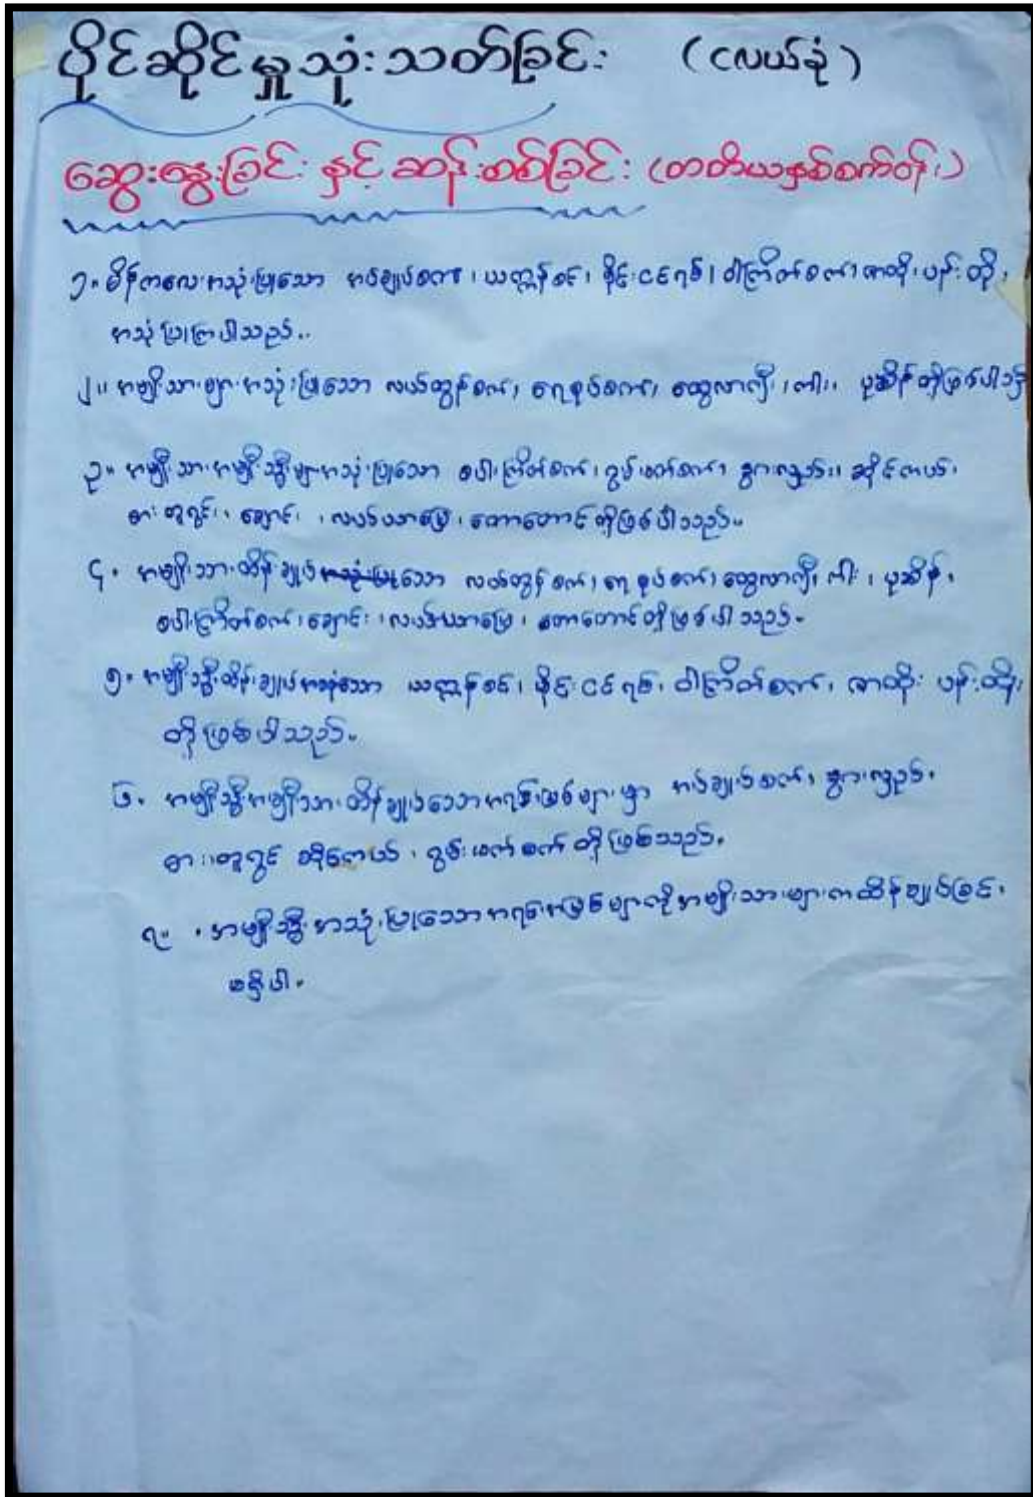 ပိုင်ဆိုင်မှုသုံးသတ်ခြင်း (ငလယ်ခုံ)
ဆွေးနွေးခြင်း နှင့် ဆန်းစစ်ခြင်း (တတိယနှစ်စက်ဝန်း)
၁။ မိန်ကလေးအသုံးပြုသော အပ်ချုပ်စက်၊ ယက္ကန်စင်၊ ဗိုင်းငင်ရစ်၊ ဝါကြိတ်စက်၊ ဇာထိုးပန်းထိုး
အသုံးပြုကြပါသည်။
၂။ အမျိုးသားများအသုံးပြုသော လယ်ထွန်စက်၊ ရေစုပ်စက်၊ ထွေလာဂျီ၊ ကား၊ ပုဆိန်တို့ဖြစ်ပါသည်
၃။ အမျိုးသားအမျိုးသ္မီးများအသုံးပြုသော စပါးကြိတ်စက်၊ ဂွမ်းဖတ်စက်၊ နွားလှည်း၊ ဆိုင်ကယ်၊
ဓား၊ တူရွင်း၊ ချောင်း၊ လယ်ယာမြေ၊ တောတောင်တို့ဖြစ်ပါသည်။
၄။ အမျိုးသားထိန်းချုပ်သော လယ်ထွန်စက်၊ ရေစုပ်စက်၊ ထွေလာဂျီ၊ ကား၊ ပုဆိန်၊
စပါးကြိတ်စက်၊ ချောင်း၊ လယ်ယာမြေ၊ တောတောင်တို့ဖြစ်ပါသည်။
၅။ အမျိုးသ္မီးထိန်းချုပ်အသုံးသော ယက္ကန်စင်၊ ဗိုင်းငင်ရစ်၊ ဝါကြိတ်စက်၊ ဇာထိုး ပန်းထိုး
တို့ဖြစ်ပါသည်။
၆။ အမျိုးသ္မီးအမျိုးသားထိန်ချုပ်သောအရင်းမြစ်များမှာ အပ်ချုပ်စက်၊ နွားလှည်း၊
ဓား၊ တူရွင် ဆိုင်ကယ်၊ ဂွမ်းဖတ်စက် တို့ဖြစ်သည်။
၇။ အမျိုးသ္မီးအသုံးပြုသောအရင်းအမြစ်များကိုအမျိုးသားများကထိန်ချုပ်ခြင်း
မရှိပါ။